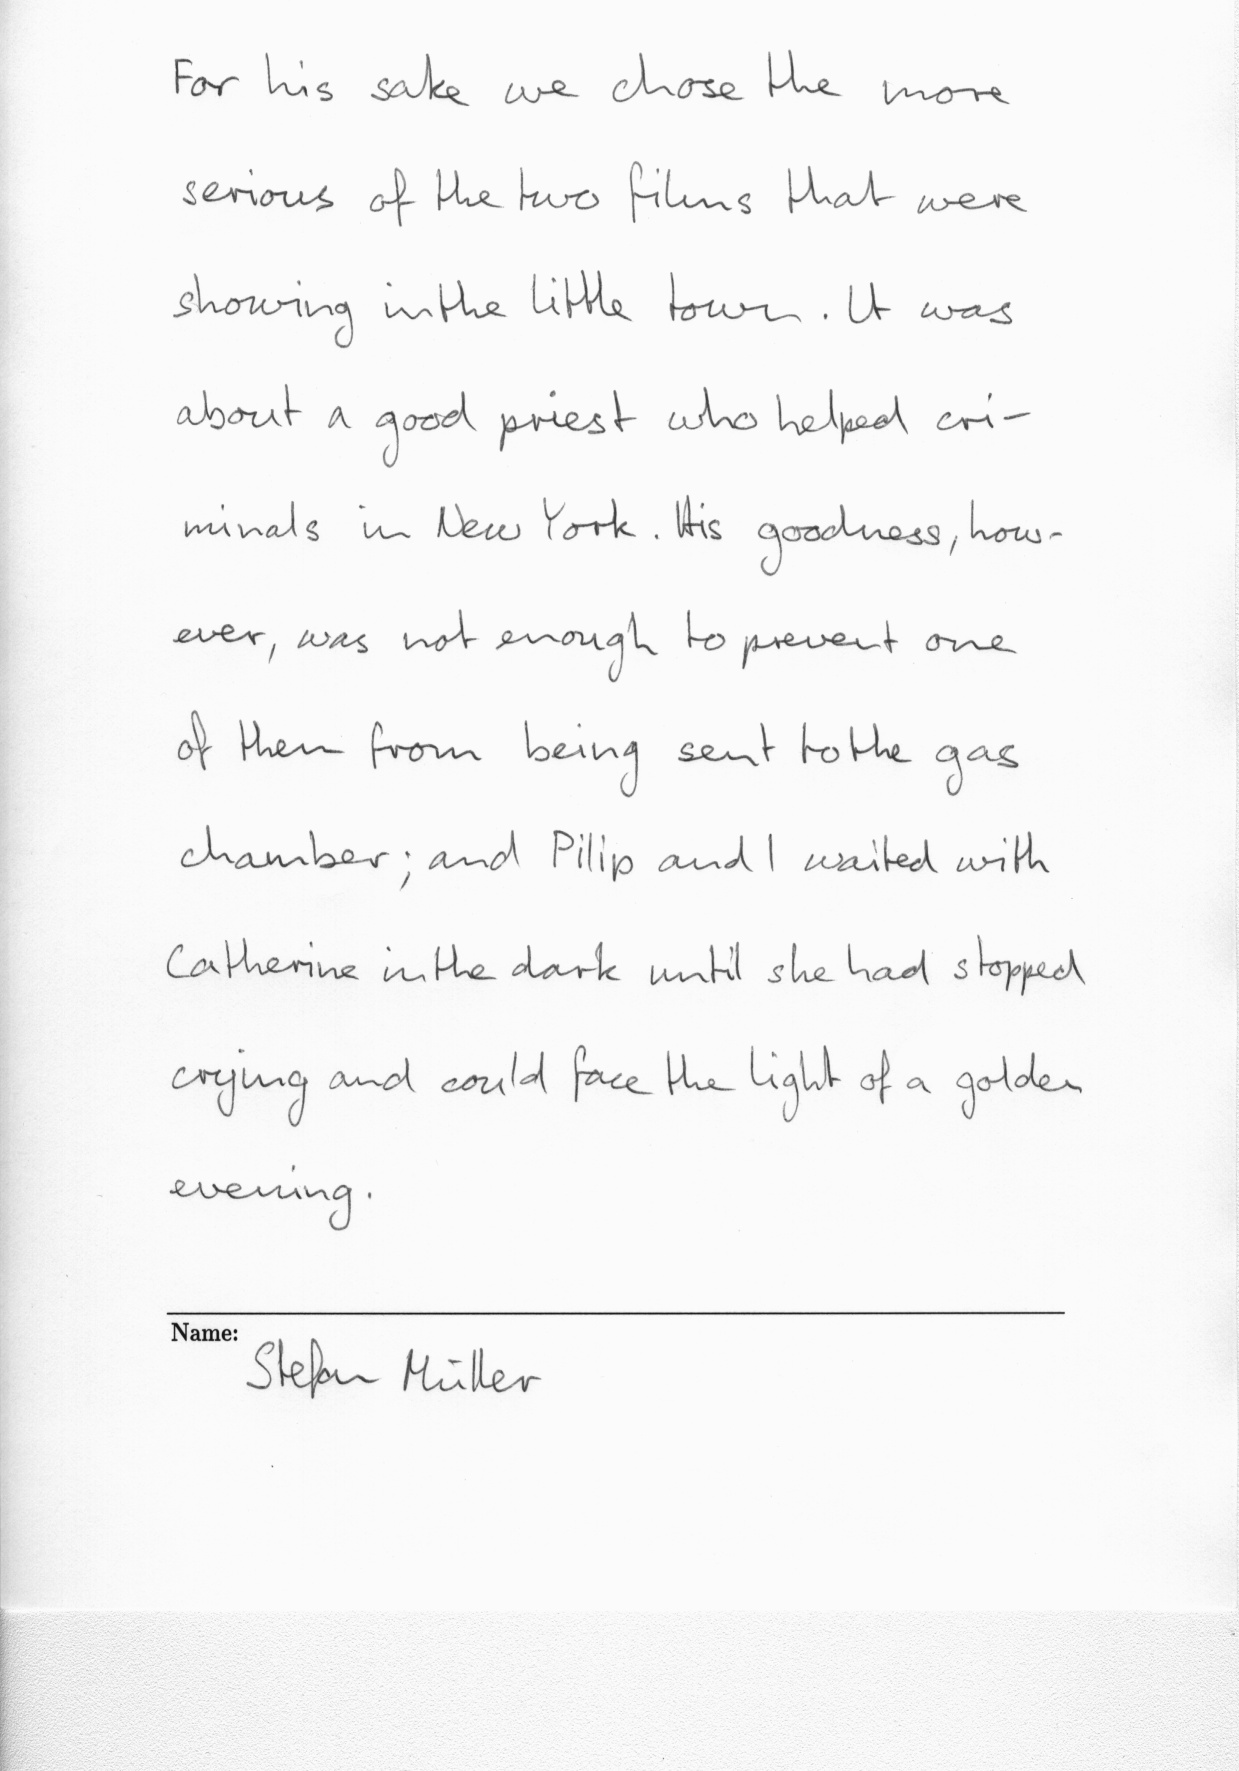 For his sake we chose the more
serious of the two films that were
showing in the little town. It was
about a good priest who helped cri-
minals in New York. His goodness, how-
ever, was not enough to prevent one
of them from being sent to the gas
chamber; and Pilip and I waited with
Catherine in the dark until she had stopped
crying and could face the light of a golden
evening.
Name:
Stefan Müller